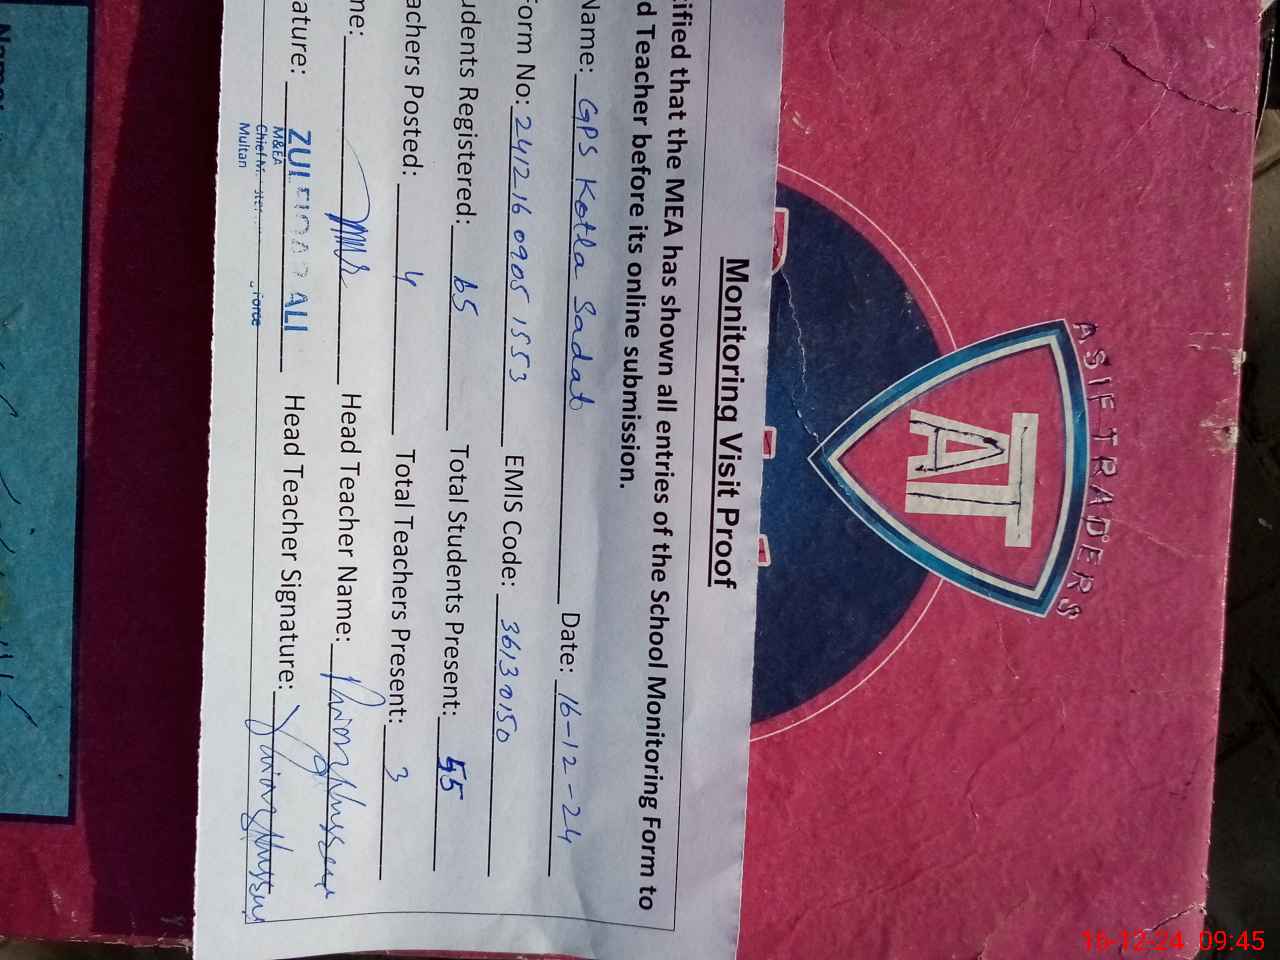 Monitoring Visit Proof
tified that the MEA has shown all entries of the School Monitoring Form to
d Teacher before its online submission.
Name: GPS Kotla Sadat Date: 16-12-24
Form No: 241216 0905 1553 EMIS Code: 36130150
udents Registered: 65 Total Students Present: 55
achers Posted: 4 Total Teachers Present: 3
me: Head Teacher Name:
ature: ALI Head Teacher Signature:
M&EA
Multan
Force
ASIF TRADERS
AT
Name:
16-12-24 09:45